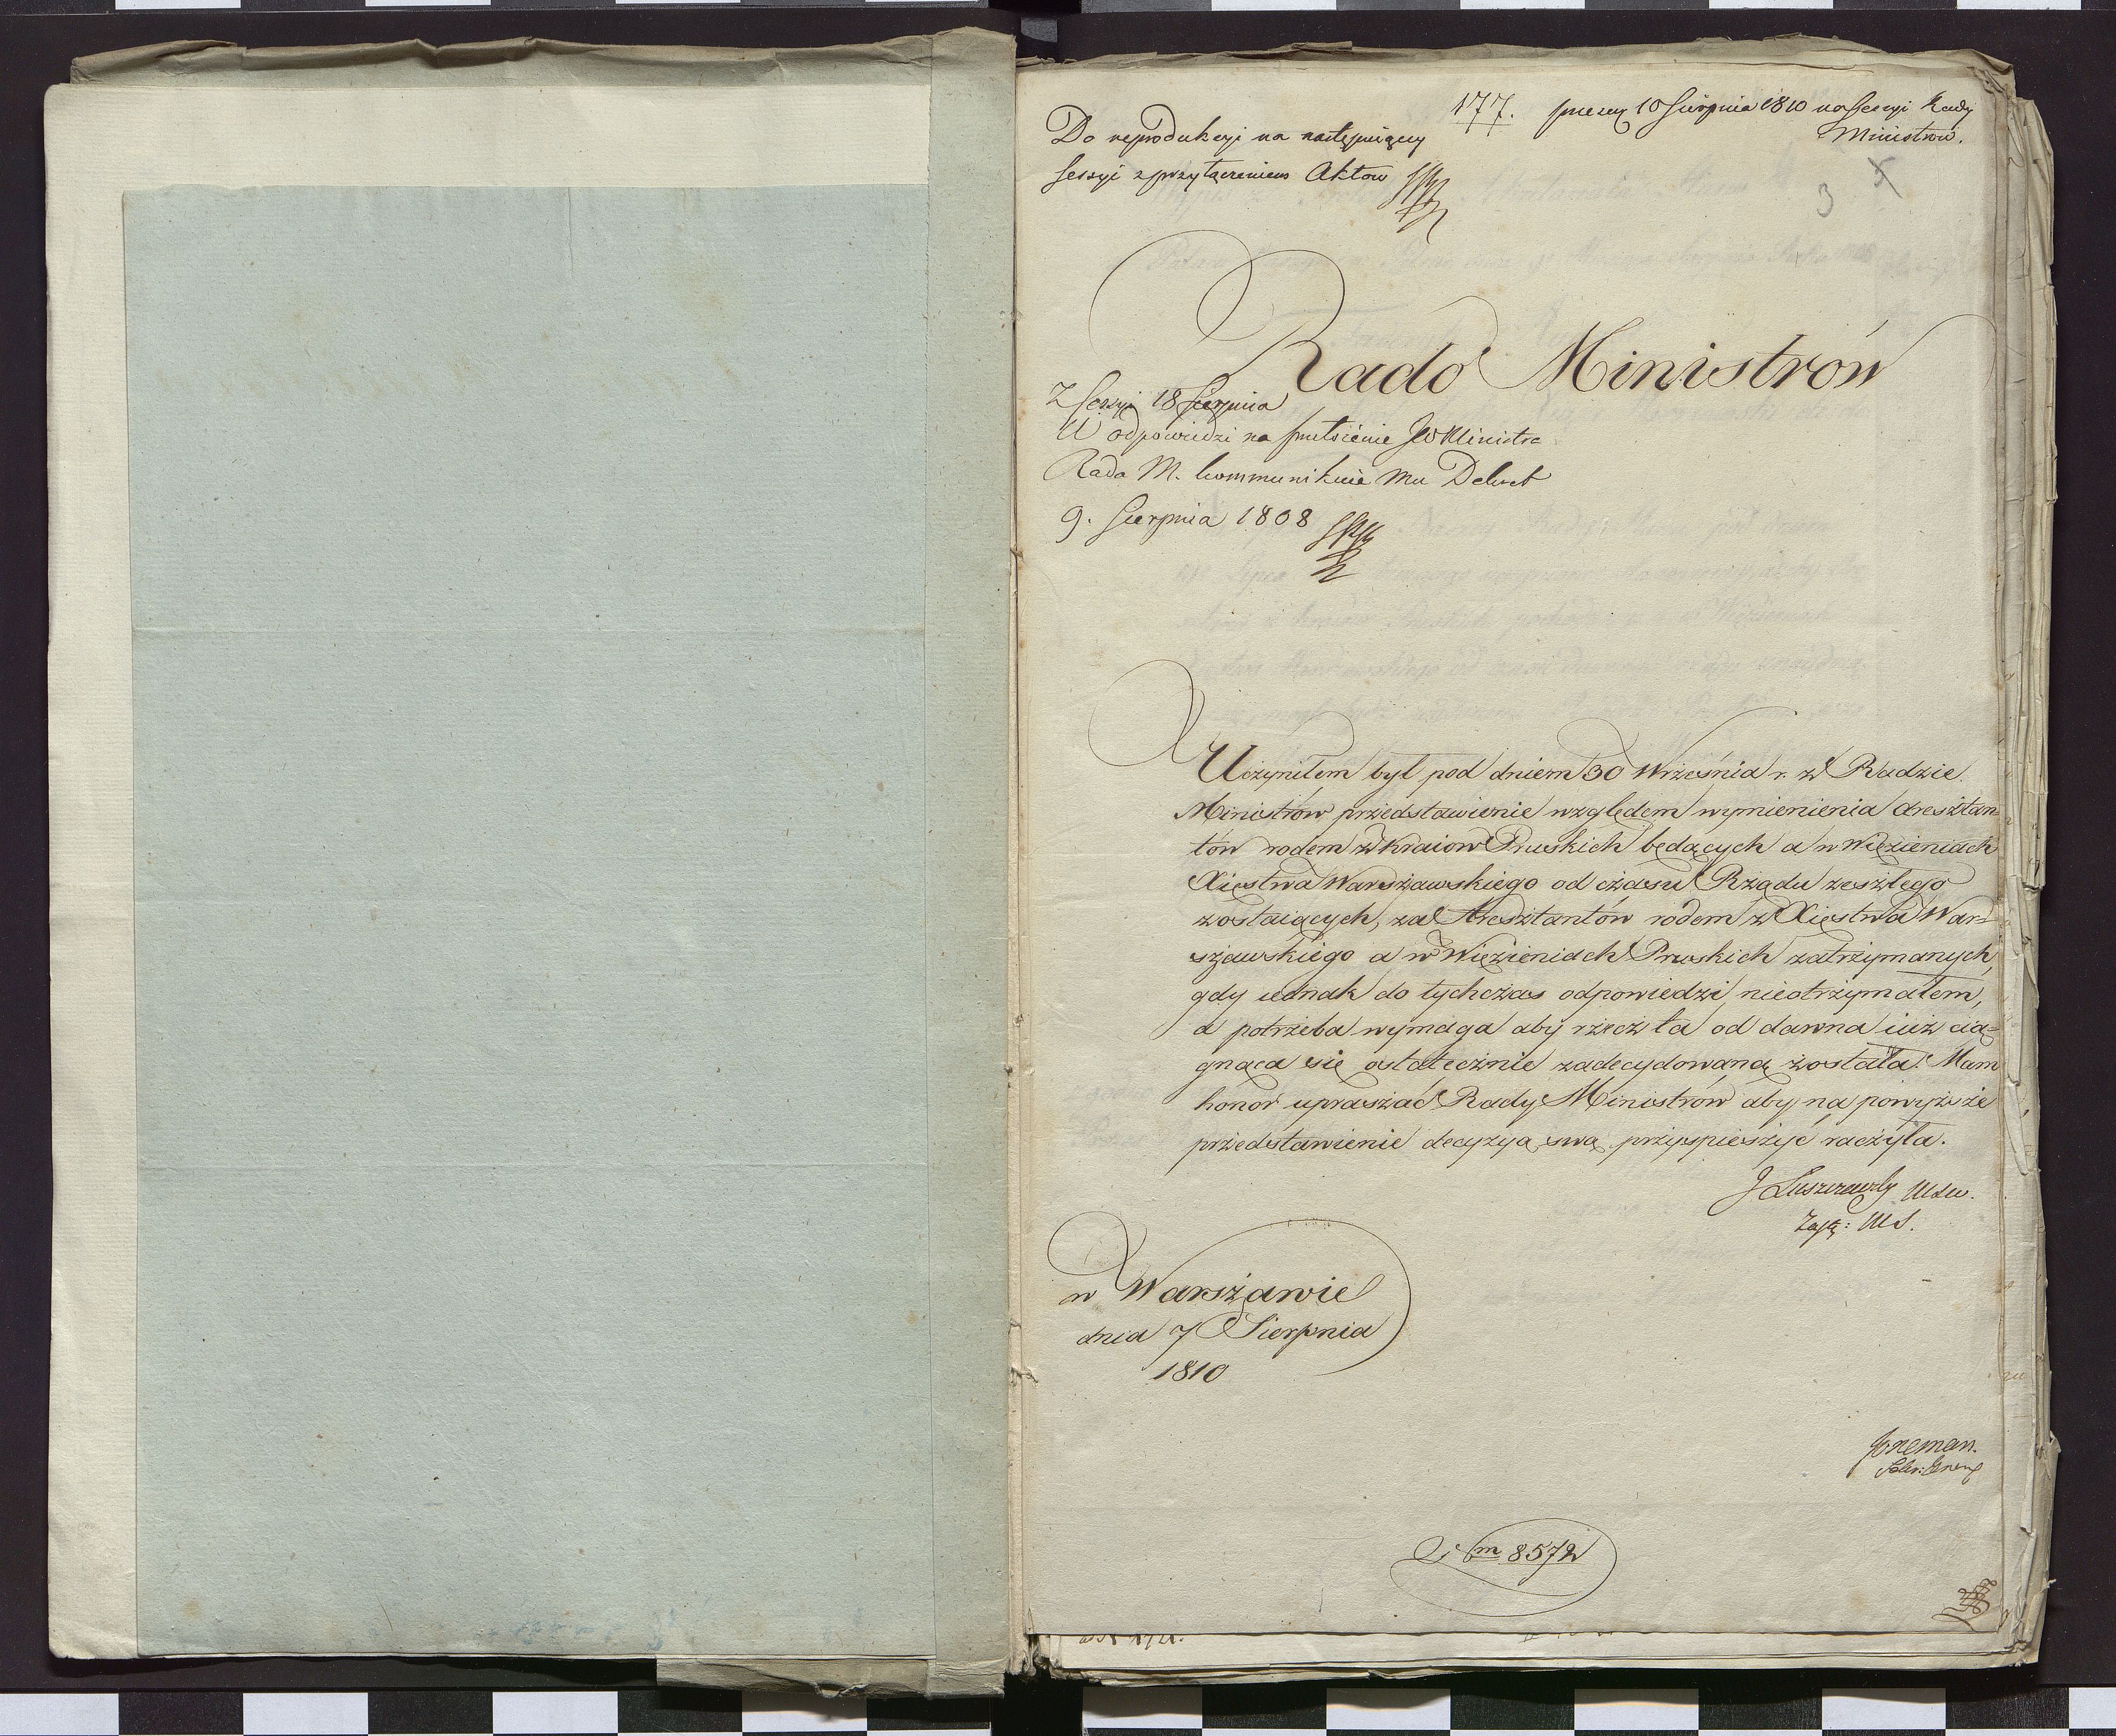 177. 10 Sierpnia 1810 na Sessyi Rady
Ministrów.
Do reprodukcyi na następuiącey
Sessyi z przyłączeniem Aktow
3
Rado Ministrów
Z Sessyi 18 Sierpnia
W odpowiedzi na JW Ministra
Rada M. kommunikuie mu Dekret
9. Sierpnia 1808
Uczyniłem był pod dniem 30 Września r. z. Radzie
Ministrów przedstawienie względem wymienienia Aresztan=
tów rodem z Kraiow Pruskich będących a w Więzieniach
Xięstwa Warszawskiego od czasu Rządu zeszłego
zostaiących, za Aresztantów rodem z Xięstwa War=
szawskiego a w Więzieniach Pruskich zatrzymanych,
gdy iednak do tychczas odpowiedzi nieotrzymałem,
a potrzeba wymaga aby rzecz ta od dawna iuż cią=
gnąca się ostatecznie zadecydowaną została. Mam
honor upraszać Rady Ministrów aby na powyższe
przedstawienie decyzyą swą przyspieszyć raczyła.
J Łuszczewski MSW.
Zastę: MS.
w Warszawie
dnia 7 Sierpnia
1810
8572